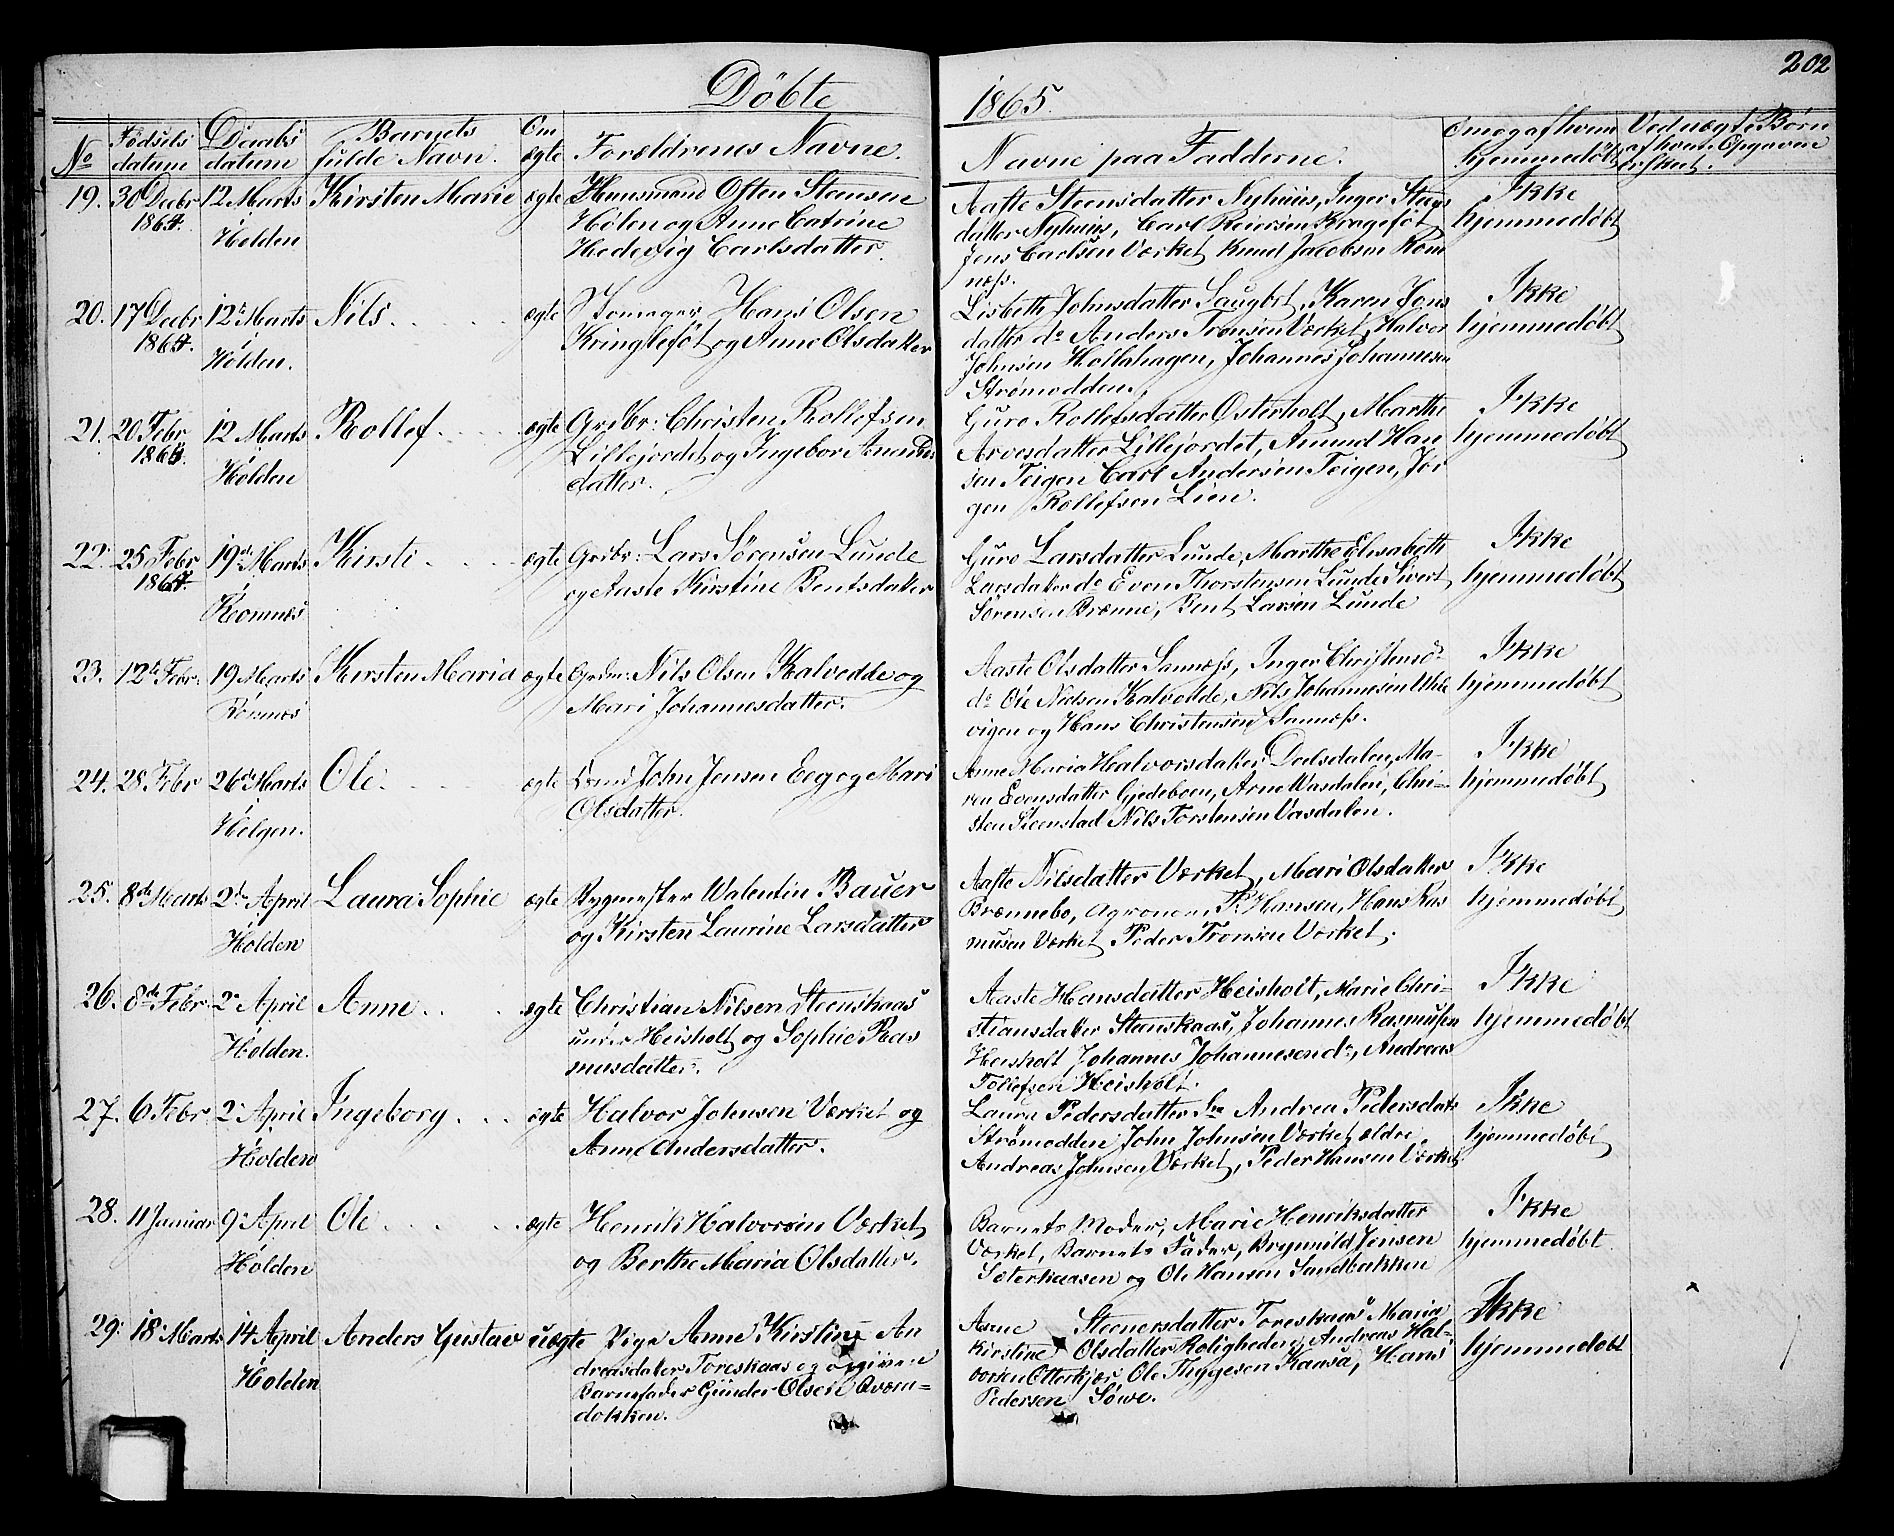 202
Döbte 1865.
No
Födsels datum
Daabs datum
Barnets fulde Navn.
Om ægte
Forældrenes Navne.
Navne paa Fadderne.
Om og af hvem hjemmedöbt
Ved uægte Börn af hvem Opgaven er skeet.
19. 30 Decbr 1864. 12 Marts i Holden Kirsten Marie ægte
Huusmand Osten Steensen
Holen og Anne Catrine
Hedevig Carlsdatter.
Aaste Steensdatter Nyhuus, Inger Steens
datter Nyhuus, Carl Reiersen Krogefôt
Jens Carlsen Værket Knud Jacobsen Rom
næss.
Ikke
hjemmedöbt
20. 17 Decbr 1864. 12te Marts i Holden. Nils. ægte
Skomager Hans Olsen
Kringlefôt og Anne Olsdatter
Lisbeth Johnsdatter Saugbt, Karen Jens
datter do Anders Tronsen Værket, Halvor
Johnsen Hollahagen, Johannes Johannesen
Strömodden.
Ikke
hjemmedöbt
21. 20 Febr 1865. 12 Marts Holden Rollef. ægte
Grdbr: Christen Rollefsen
Lillejordet og Ingebor Anunds
datter.
Guro Rollefsdatter Osterholt, Marthe
Arvesdatter Lillejordet, Amund Han
sen Teigen Carl Andersen Teigen, Jör
gen Rollefsen Lien.
Ikke
hjemmedöbt
22. 25 Febr 1864. 19de Marts Romnæs Kirsti. ægte
Grdbr: Lars Sörensen Lunde
og Aaste Kirstine Bentsdatter
Guro Larsdatter Lunde, Marthe Elisabeth
Larsdatter do Even Thorstensen Lunde Sivert
Sörensen Brænne, Bent Larsen Lunde
Ikke
hjemmedöbt
23. 12te Febr. 19 Marts Romnæs Kirsten Maria ægte
Grdm: Nils Olsen Kalvedde og
Mari Johannesdatter.
Aaste Olsdatter Sannæss, Inger Christensdt
do Ole Nielsen Kalvedde, Nils Johannesen
vigen og Hans Christensen Sannæss.
Ikke
hjemmedöbt
24. 28 Febr 26de Marts i Helgen. Ole. ægte
John Jensen Eeg og Mari
Olsdatter.
Anne Maria Halvorsdatter Dalsdalen, Ma-
ren Evensdatter Gjedeboen, Arne Vasdalen, Chri-
sten Steenstad Nils Torstensen Vasdalen.
Ikke
hjemmedöbt
25. 8de Marts 2den April Holden Laura Sophie ægte
Bygmester Walentin Bauer
og Kirsten Laurine Larsdatter
Aaste Nilsdatter Værket, Mari Olsdatter
Brænnebo, Agronom P. Hansen, Hans Ras
musen Værket Peder Tronsen Værket.
Ikke
hjemmedöbt
26. 8de Febr. 2n April Holden. Anne. ægte
Christian Nilsen Steenskaas
under Heisholt og Sophie Ras
musdatter.
Aaste Hansdatter Heisholt, Marie Chri-
stiansdatter Stenskaas, Johannes Rasmusen
Heisholt Johannes Johannesen do, Andreas
Tollefsen Heisholt.
Ikke
hjemmedöbt
27. 6 Febr 2n April Holden Ingeborg. ægte
Halvor Johnsen Værket og
Anne Andersdatter.
Laura Pedersdatter Andrea Pedersdat
Strömodden John Johnsen Værket ældre
Andreas Johnsen Værket, Peder Hansen Værket
Ikke
hjemmedöbt
28. 11 Januar 9n April Holden Ole ægte
Henrik Halvorsen Værket
og Berthe Maria Olsdatter.
Barnets Moder, Marie Henriksdatter
Værket, Barnets Fader, Brynnild Jensen
Sæterkaasen og Ole Hansen Sandbakken
Ikke
hjemmedöbt.
29. 18 Marts 14 April Holden Anders Gustav uægte
Pige Anne Kirstine An
dreasdatter Foreskaas og opgiven
Barnefader Gunder Olsen Qværn-
dokken.
Anne Steenersdatter Foreskaas Maria
Kirstine Olsdatter Roligheden, Andreas Hal-
vorsen Otterkjær, Ole Thygesen Kaasa, Hans
Pedersen Söwe.
Ikke
hjemmedöbt